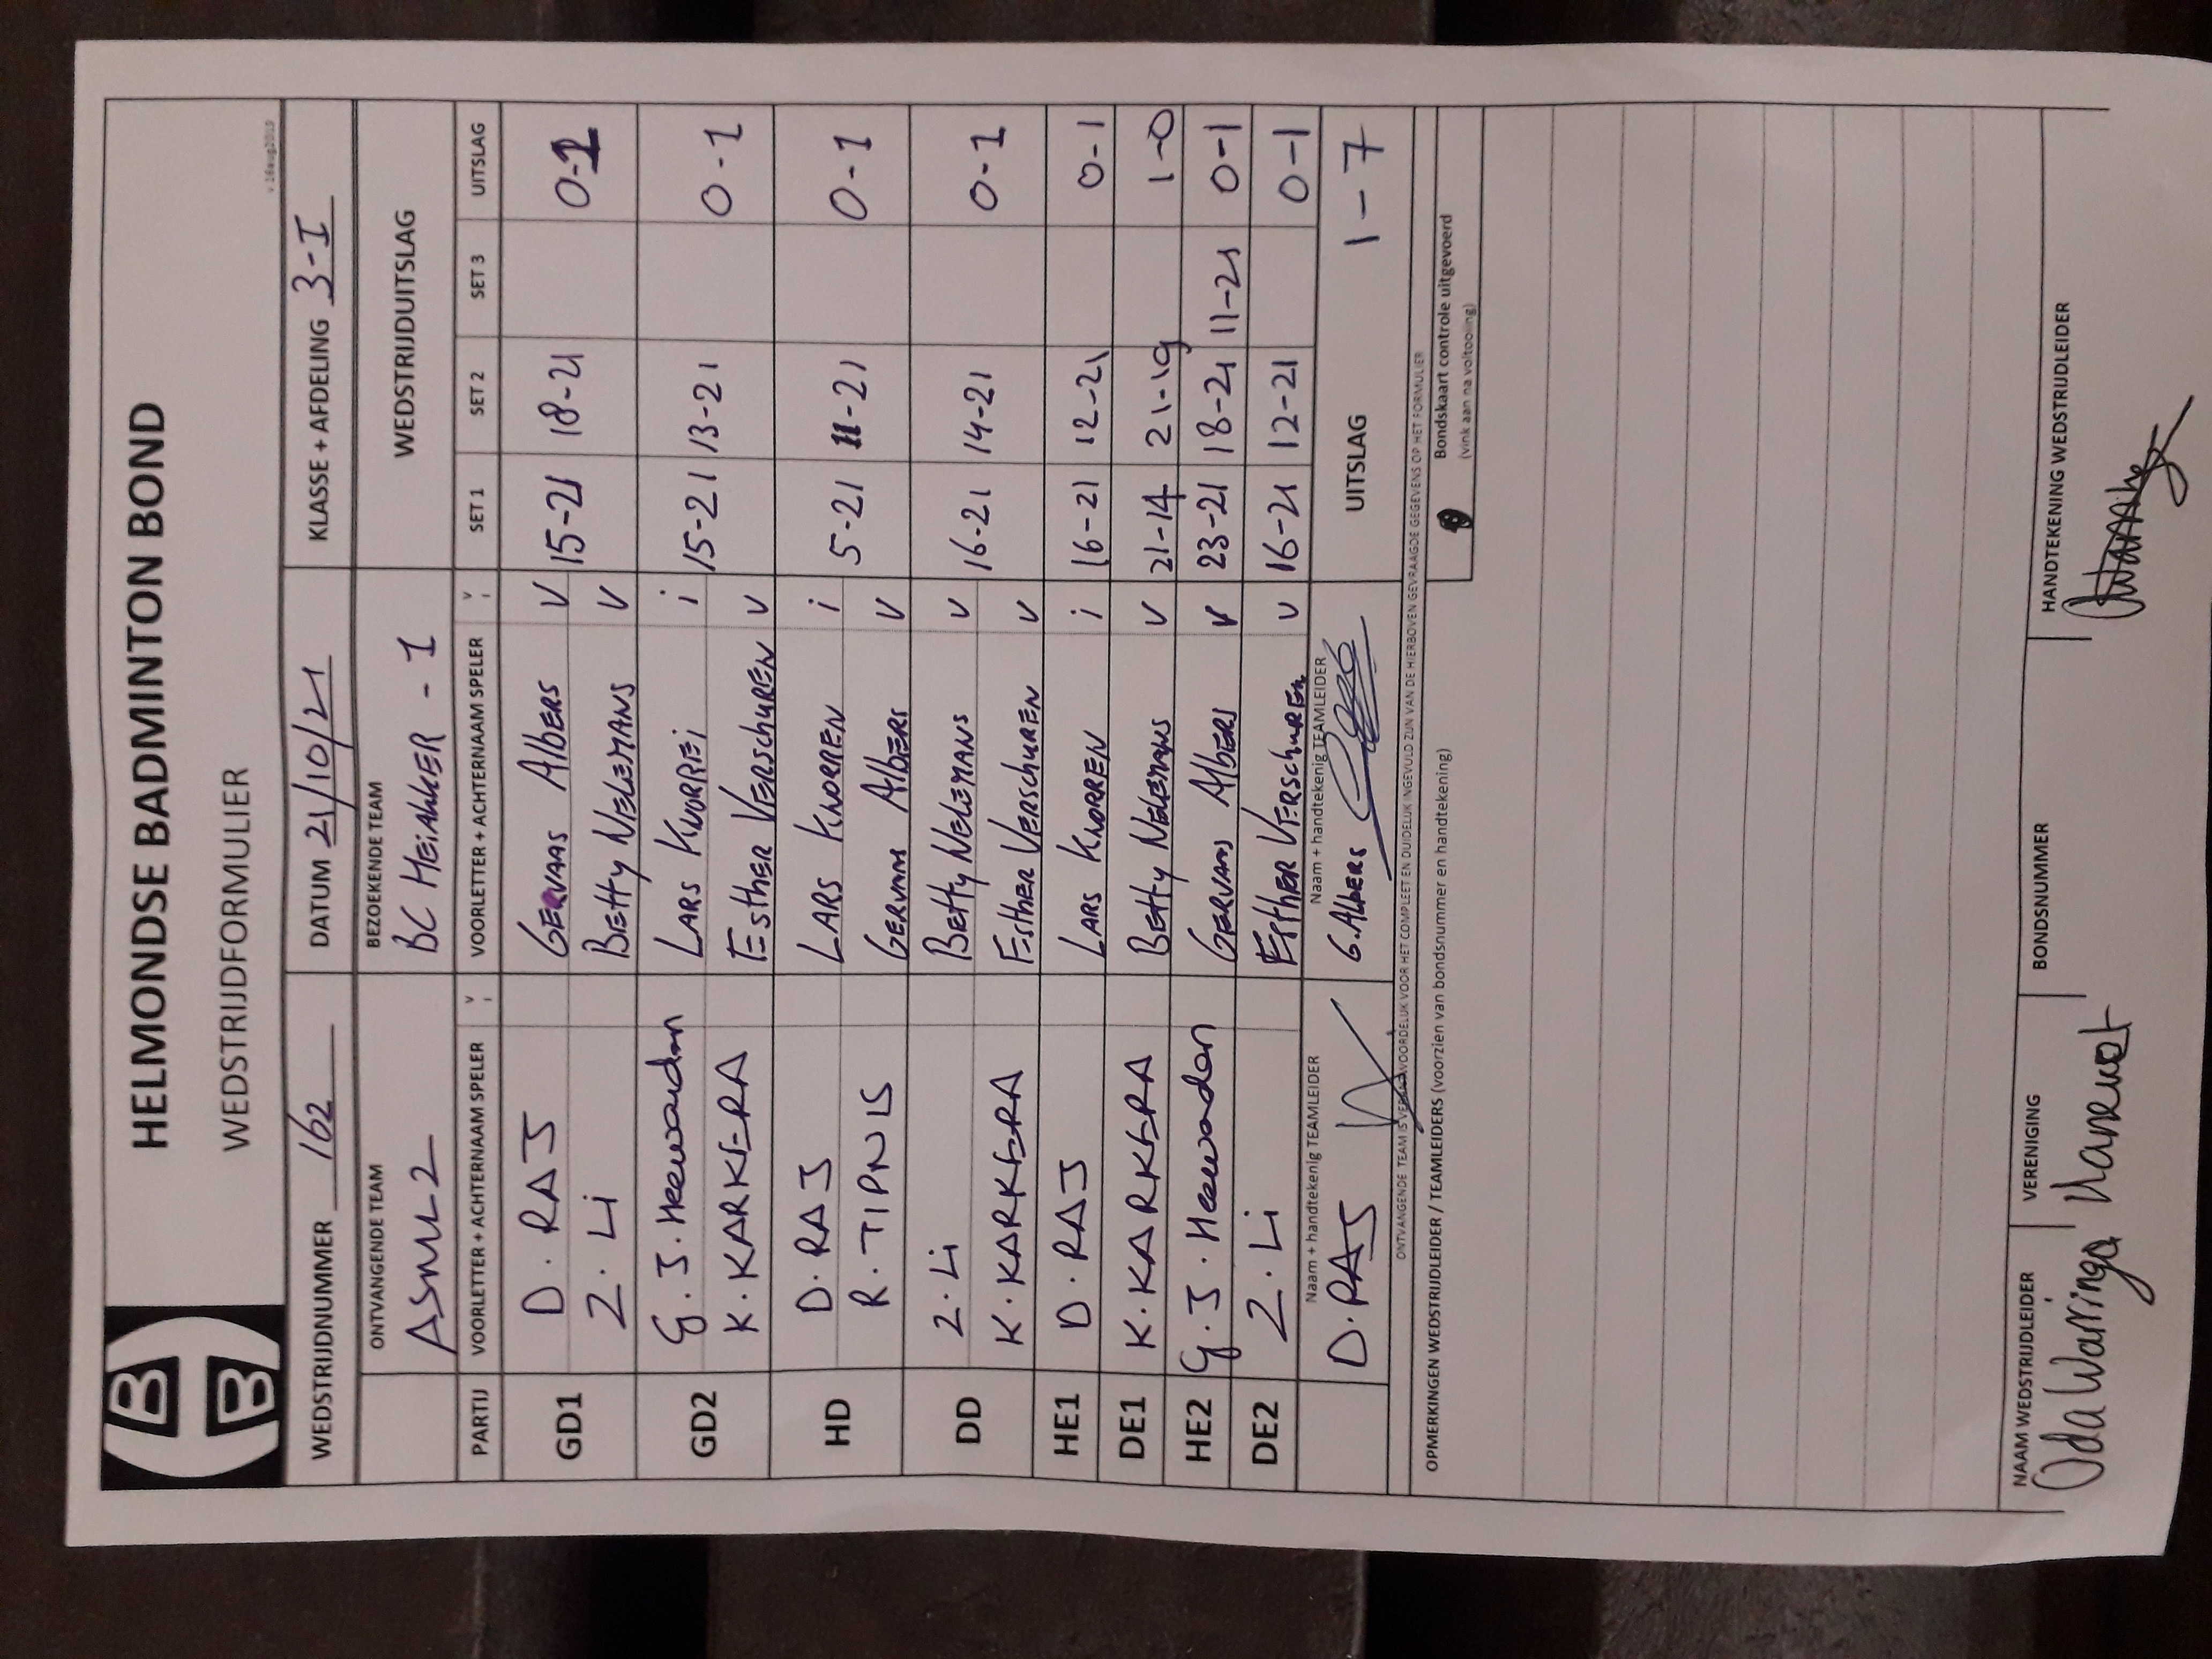 HELMONDSE BADMINTON BOND
WEDSTRIJDFORMULIER
v 16aug2019
WEDSTRIJDNUMMER 162 DATUM 21/10/21 KLASSE + AFDELING 3-I
ONTVANGENDE TEAM BEZOEKENDE TEAM WEDSTRIJDUITSLAG
ASML 2 BC MEiAKKER - 1
PARTIJ VOORLETTER + ACHTERNAAM SPELER v i VOORLETTER + ACHTERNAAM SPELER v i SET 1 SET 2 SET 3 UITSLAG
GD1 D. RAJ GERVAAS AlbERS V 15-21 18-21 0-1
Z. Li BEttY NELEMANS V
GD2 G. J. Heewadan LARS KNORREi i 15-21 13-21 0-1
K. KARKERA EStHER VERSchUREN V
HD D. RAJ LARS KNORREN i 5-21 11-21 0-1
R. TIPNIS GERVAAS AlbERS V
DD Z. Li BEttY NELEMANS V 16-21 14-21 0-1
K. KARKERA EStHER VERSchUREN V
HE1 D. RAJ LARS KNORREN i 16-21 12-21 0-1
DE1 K. KARKERA BEttY NELEMANS V 21-14 21-19 1-0
HE2 G. J. Heewadan GERVAAS AlbERS V 23-21 18-21 11-21 0-1
DE2 Z. Li EStHER VERSchUREN V 16-21 12-21 0-1
Naam + handtekenig TEAMLEIDER Naam + handtekenig TEAMLEIDER UITSLAG 1-7
D. RAJ G. AlbERS
ONTVANGENDE TEAM IS VERANTWOORDELIJK VOOR HET COMPLEET EN DUIDELIJK INGEVULD ZIJN VAN DE HIERBOVEN GEVRAAGDE GEGEVENS OP HET FORMULIER
OPMERKINGEN WEDSTRIJDLEIDER / TEAMLEIDERS (voorzien van bondsnummer en handtekening)
Bondskaart controle uitgevoerd
(vink aan na voltooiing)
NAAM WEDSTRIJDLEIDER VERENIGING BONDSNUMMER HANDTEKENING WEDSTRIJDLEIDER
Oda Warringa